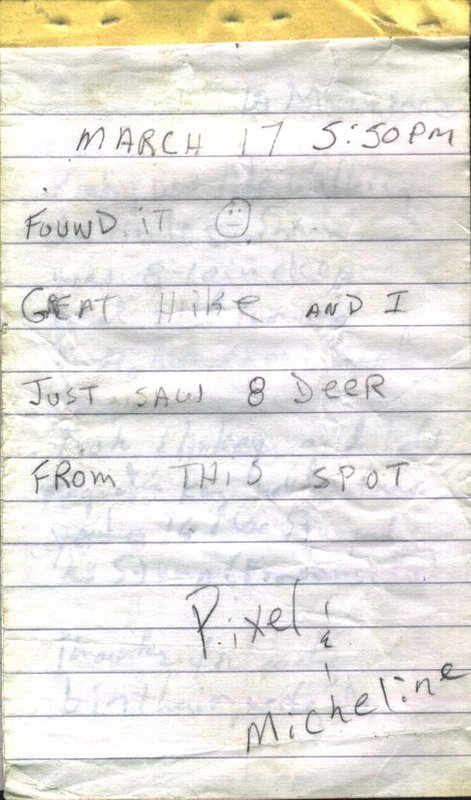 MARCH 17 5:50PM
FOUND IT
GREAT HIKE AND I
JUST SAW 8 DEER
FROM THIS SPOT
Pixel &
Micheline